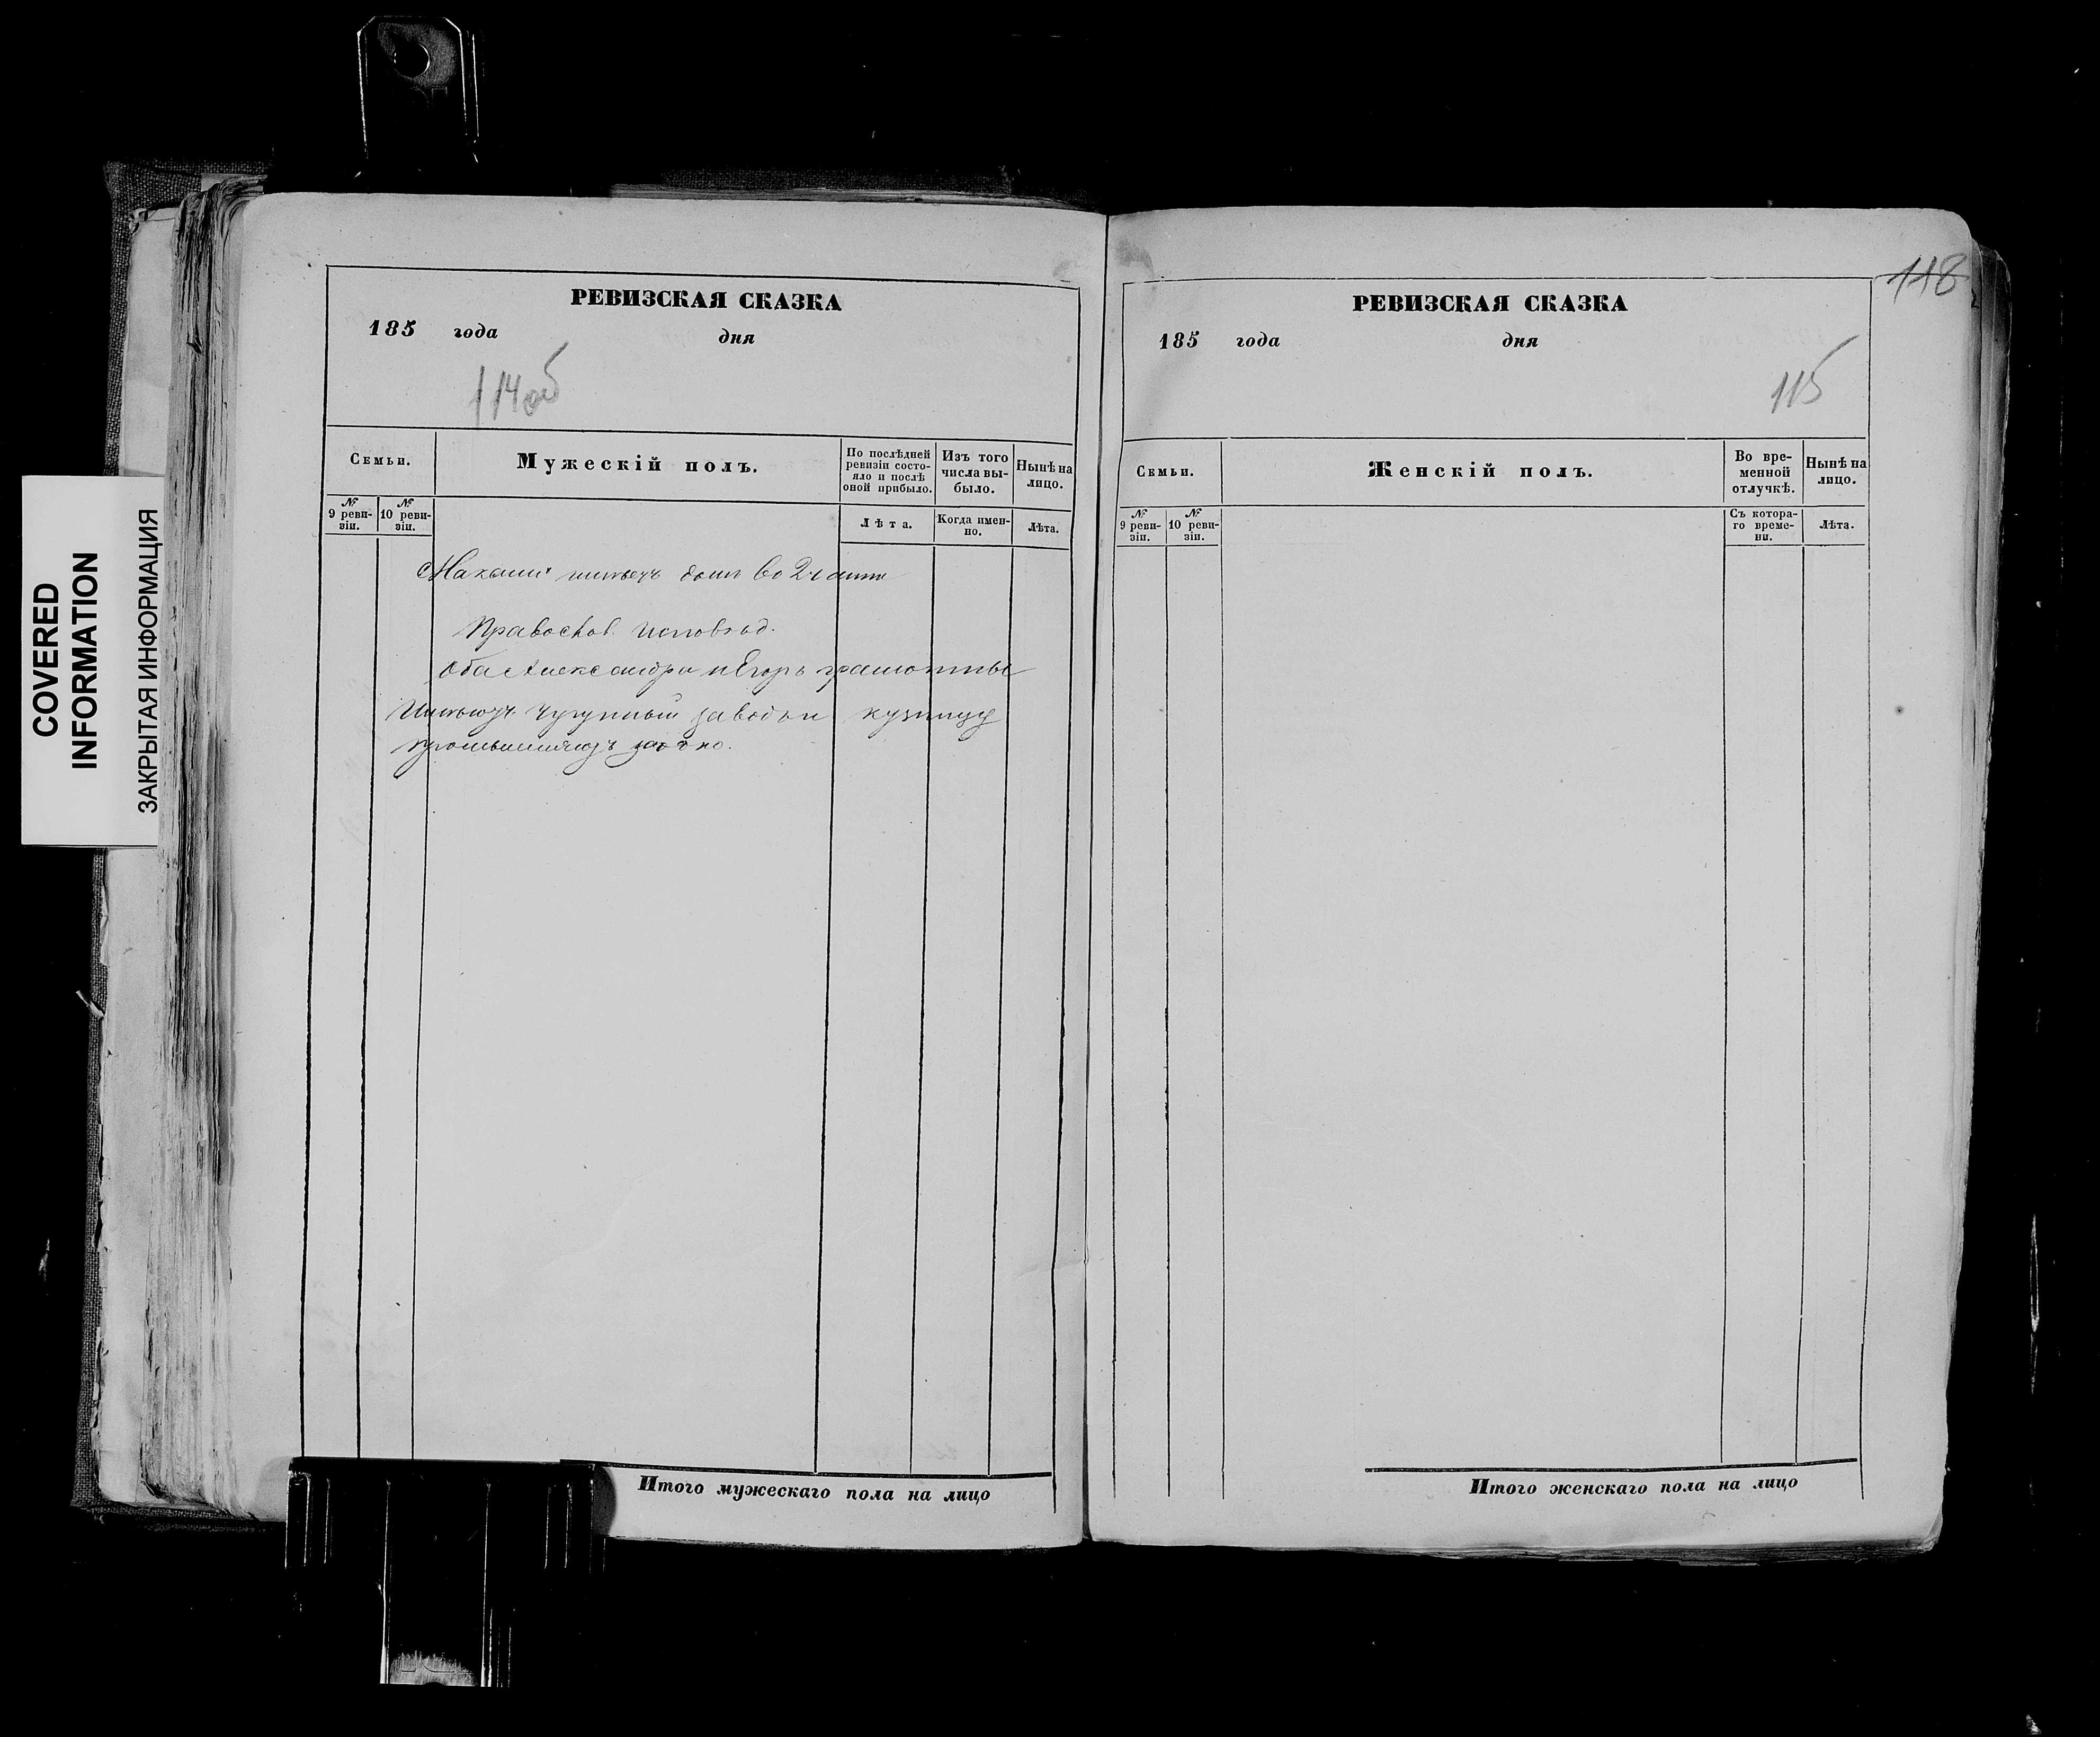 COVERED
INFORMATION
ЗАКРЫТАЯ ИНФОРМАЦИЯ
РЕВИЗСКАЯ СКАЗКА
185 года дня
114об
Семьи.
Мужескій полъ.
По послѣдней ревизіи состояло и послѣ оной прибыло.
Изъ того числа выбыло.
Нынѣ на лицо.
№ 9 ревизіи.
№ 10 ревизіи.
Лѣта.
Когда именно.
Лѣта.
домъ во 2й части
Православ. исповѣд.
Оба Александръ и Егоръ грамотные
Имѣютъ чугунный заводъ и кузницу
Итого мужескаго пола на лицо
118
РЕВИЗСКАЯ СКАЗКА
185 года дня
115
Семьи.
Женскій полъ.
Во временной отлучкѣ.
Нынѣ на лицо.
№ 9 ревизіи.
№ 10 ревизіи.
Съ котораго времени.
Лѣта.
Итого женскаго пола на лицо